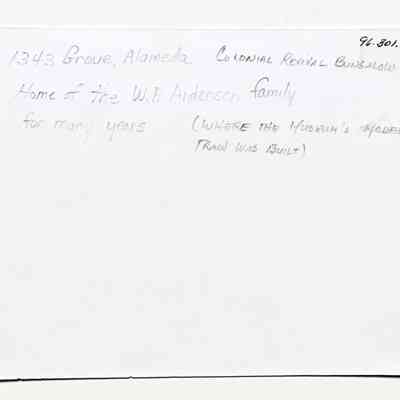 96.301.
1343 Grove, Alameda COLONIAL REVIVAL BUNGALOW
Home of the W.P. Andersen family
for many years (WHERE THE MUSEUM'S MODEL
TRAIN WAS BUILT)